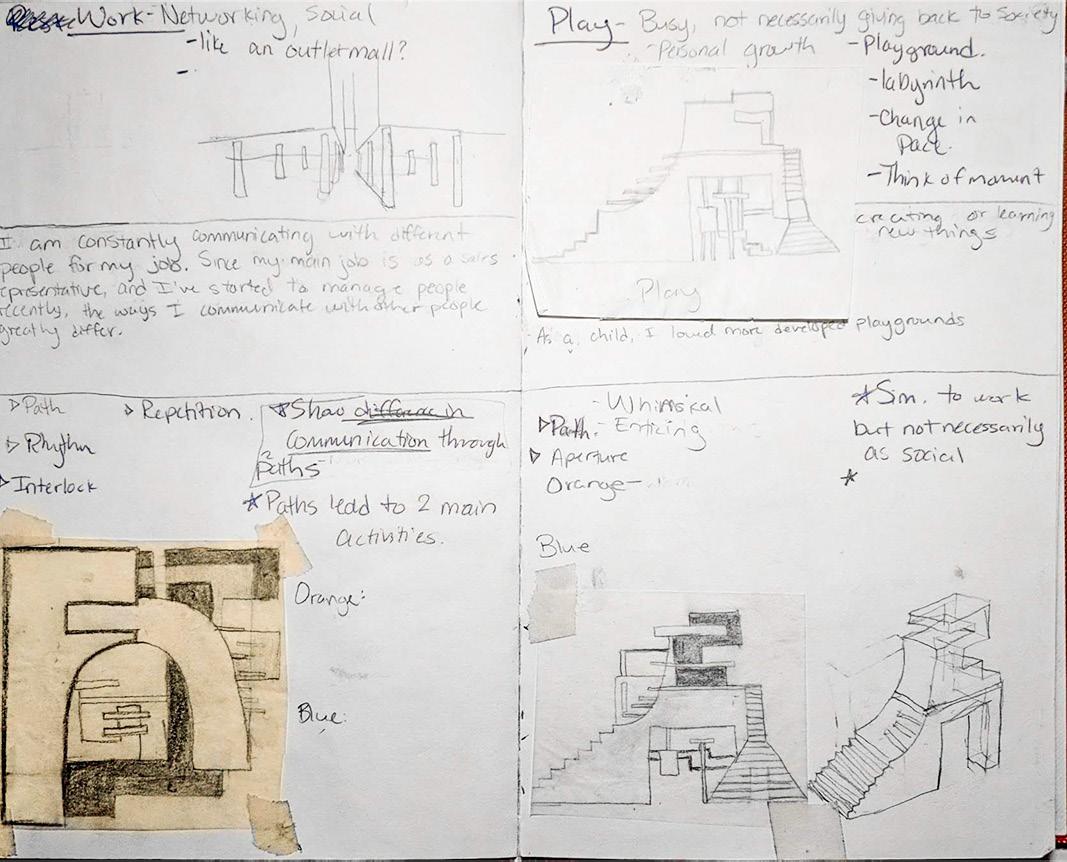 Work - Networking, Social
- like an outlet mall?
-
I am constantly communicating with different
people for my job. Since my main job is as a sales
epresentative, and I've started to manage people
recently, the ways I communicate with other people
greatly differ.
▷ Path
▷ Repetition.
▷ Rhythm
▷ Interlock
☆ Show difference in
communication through
paths
☆ Paths lead to 2 main
activities.
Orange:
Blue:
Play - Busy, not necessarily giving back to Society
- Personal growth
- Playground.
- labyrinth
- Change in
Pace.
- Think of
creating or learning
new things
Play
- As a child, I loved more developed playgrounds
- Whimsical
▷ Path. - Enticing
▷ Aperture
Orange -
Blue
☆ Sim. to work
but not necessarily
as social
☆